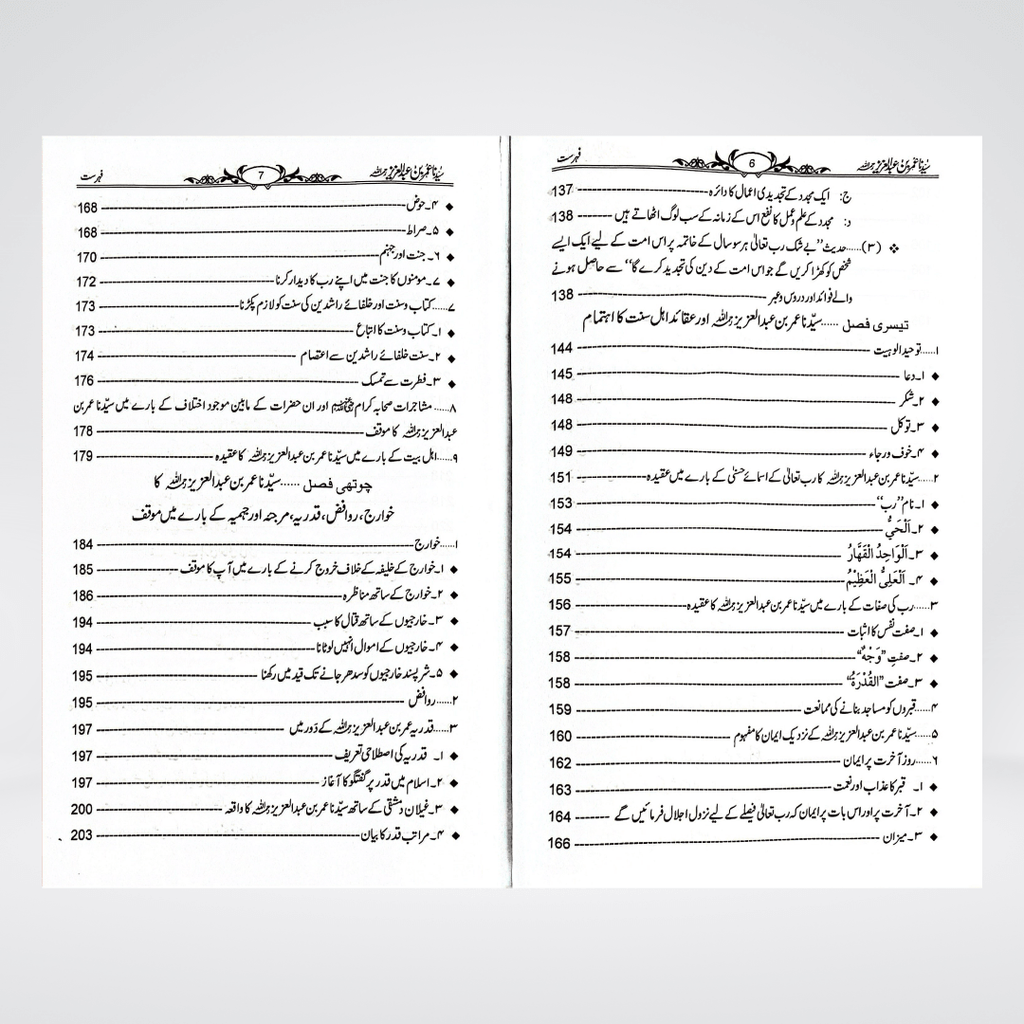 سیّدنا عمر بن عبدالعزیز رحمہ اللہ 6 فہرست
ج: ایک مجدد کے تجدیدی اعمال کا دائرہ 137
د: مجدد کے علم و عمل کا نفع اس کے زمانہ کے سب لوگ اٹھاتے ہیں 138
❖ (۳).....حدیث ’’بے شک رب تعالیٰ ہر سو سال کے خاتمہ پر اس امت کے لیے ایک ایسے
شخص کو کھڑا کریں گے جو اس امت کے دین کی تجدید کرے گا‘‘ سے حاصل ہونے
والے فوائد اور دروس و عبر 138
تیسری فصل ...... سیّدنا عمر بن عبدالعزیز رحمہ اللہ اور عقائد اہل سنت کا اہتمام
۱.....توحید الوہیت 144
◆ ۱۔دعا 145
◆ ۲۔شکر 148
◆ ۳۔توکل 148
◆ ۴۔خوف و رجاء 149
۲.....سیّدنا عمر بن عبدالعزیز رحمہ اللہ کا رب تعالیٰ کے اسمائے حسنیٰ کے بارے میں عقیدہ 151
◆ ۱۔نام ’’رب‘‘ 153
◆ ۲۔اَلْحَيُّ 154
◆ ۳۔اَلْوَاحِدُ الْقَهَّارُ 154
◆ ۴۔ اَلْعَلِيُّ الْعَظِيْمُ 155
۳.....رب کی صفات کے بارے میں سیّدنا عمر بن عبدالعزیز رحمہ اللہ کا عقیدہ 156
◆ ۱۔صفت نفس کا اثبات 157
◆ ۲۔صفتِ ’’وَجْهٌ‘‘ 158
◆ ۳۔صفت ’’القُدْرَةُ‘‘ 158
۴.....قبروں کو مساجد بنانے کی ممانعت 159
۵.....سیّدنا عمر بن عبدالعزیز رحمہ اللہ کے نزدیک ایمان کا مفہوم 160
۶.....روزِ آخرت پر ایمان 162
◆ ۱۔ قبر کا عذاب اور نعمت 163
◆ ۲۔آخرت پر اور اس بات پر ایمان کہ رب تعالیٰ فیصلے کے لیے نزول اجلال فرمائیں گے 164
◆ ۳۔میزان 166
سیّدنا عمر بن عبدالعزیز رحمہ اللہ 7 فہرست
◆ ۴۔حوض 168
◆ ۵۔صراط 168
◆ ۶۔جنت اور جہنم 170
◆ ۷۔مومنوں کا جنت میں اپنے رب کا دیدار کرنا 172
۷.....کتاب و سنت اور خلفائے راشدین کی سنت کو لازم پکڑنا 173
◆ ۱۔کتاب و سنت کا اتباع 173
◆ ۲۔سنت خلفائے راشدین سے اعتصام 174
◆ ۳۔فطرت سے تمسک 176
۸..... مشاجرات صحابہ کرام رضی اللہ عنہم اور ان حضرات کے مابین موجود اختلاف کے بارے میں سیّدنا عمر بن
عبدالعزیز رحمہ اللہ کا موقف 178
۹.....اہل بیت کے بارے میں سیّدنا عمر بن عبدالعزیز رحمہ اللہ کا عقیدہ 179
چوتھی فصل ...... سیّدنا عمر بن عبدالعزیز رحمہ اللہ کا
خوارج، روافض، قدریہ، مرجئہ اور جہمیہ کے بارے میں موقف
۱.....خوارج 184
◆ ۱۔خوارج کے خلیفہ کے خلاف خروج کرنے کے بارے میں آپ کا موقف 185
◆ ۲۔خوارج کے ساتھ مناظرہ 186
◆ ۳۔خارجیوں کے ساتھ قتال کا سبب 194
◆ ۴۔خارجیوں کے اموال انہیں لوٹانا 194
◆ ۵۔شرپسند خارجیوں کو سدھر جانے تک قید میں رکھنا 195
۲.....روافض 195
۳.....قدریہ عمر بن عبدالعزیز رحمہ اللہ کے دَور میں 197
◆ ۱۔ قدریہ کی اصطلاحی تعریف 197
◆ ۲۔اسلام میں قدر پر گفتگو کا آغاز 197
◆ ۳۔غیلان دمشقی کے ساتھ سیّدنا عمر بن عبدالعزیز رحمہ اللہ کا واقعہ 200
◆ ۴۔مراتب قدر کا بیان 203